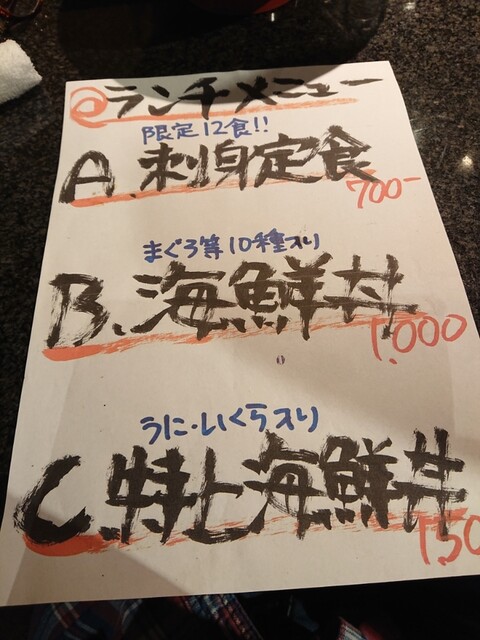 ランチメニュー
限定12食!!
A.刺身定食
700-
まぐろ等10種入り
B.海鮮丼
1,000
うに・いくら入り
C.特上海鮮丼
1,50